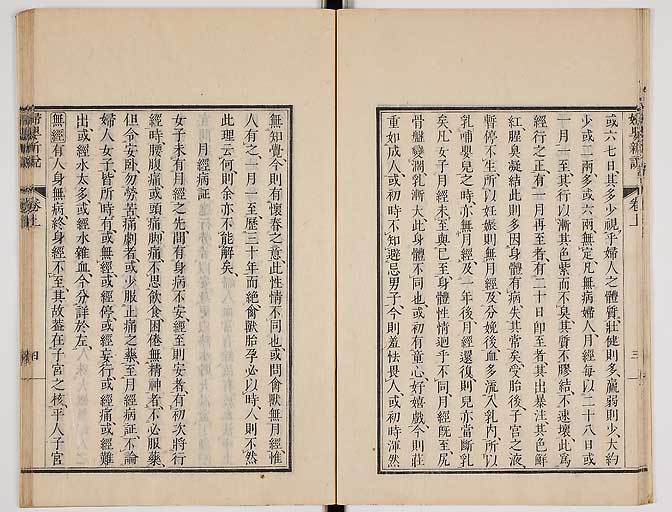 或六七日、其多少視乎婦人之體質、壯健則多、羸弱則少、大約
少或二兩、多或六兩、無定、凡無病婦人、月經每以二十八日、或
一月一至、其行以漸、其色紫而不臭、其質不膠結、不速壞、此爲
經行之正、有一月再至者、有二十日卽至者、其出暴注、其色鮮
紅、腥臭凝結、此則多因身體有病、失其常矣、受胎後子宮之液、
暫停不生、所以妊娠則無月經、及分娩後、血多流入乳內、所以
乳哺嬰兒之時、亦無月經、及一年後、月經還復、則兒亦當斷乳
矣、凡女子月經未至、與已至、身體性情、迥乎不同、月經既至、尻
骨盤變濶、乳漸大、此身體不同也、或初有童心、好嬉戲、今則莊
重如成人、或初時不知避忌男子、今則羞怯畏人、或初時渾然
婦嬰新說
卷上
三
無知覺、今則有懷春之意、此性情不同也、或問禽獸無月經、惟
人有之、一月一至、歷三十年而絕、禽獸胎孕必以時、人則不然、
此理云何、則余亦不能解矣、
月經病証
女子未有月經之先、間有身病不安、經至則安者、有初次將行
經時、腰腹痛、或頭痛脚痛、不思飲食、困倦無精神者、不必服藥、
但令安臥、勿勞苦、痛劇者、或少服止痛之藥、至月經病証、不論
婦人女子、皆所時有、或無經、或經停、或經妄行、或經痛、或經難
出、或經水太多、或經水雜血、今分詳於左、
無經、有人身無病、終身經不至、其故蓋在子宮之核、乎人子宮
婦嬰新說
卷上
四